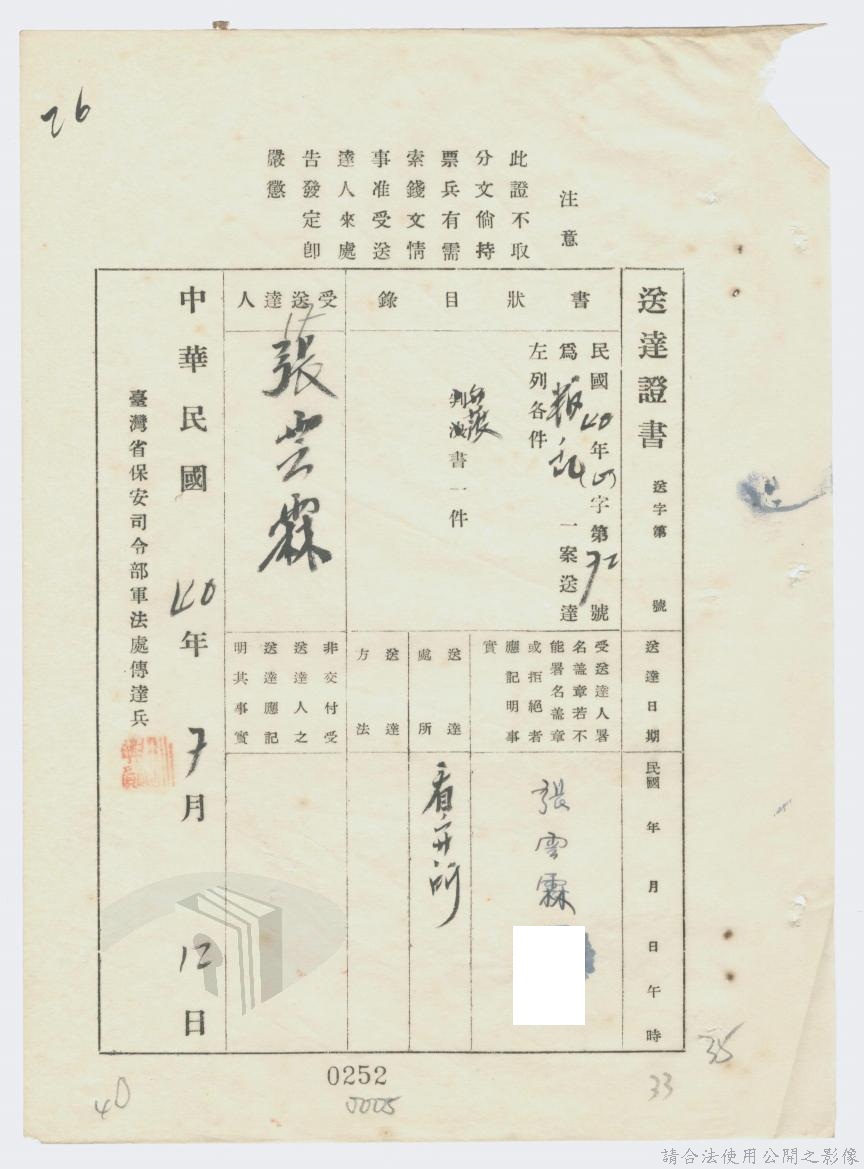 26
注意
此證不取
分文倘持
票兵有需
索錢文情
事准受送
達人來處
告發定卽
嚴懲
送達證書 送字第 號
送達日期
民國 年 月 日 午 時
書狀目錄
民國40年 字第 號
為叛亂一案送達
左列各件
判決書一件
受送達人署
名蓋章若不
能署名蓋章
或拒絕者
應記明事
實
張雲霖
送達
處所
看守所
送達
方法
受送達人
張雲霖
非交付受
送達人之
送達應記
明其事實
中華民國40年7月12日
臺灣省保安司令部軍法處傳達兵
0252
40
33
35
請合法使用公開之影像